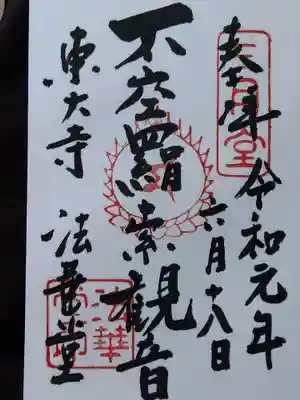 奉拝
令和元年
六月十八日
不空羂索観音
東大寺
法華堂
三月堂